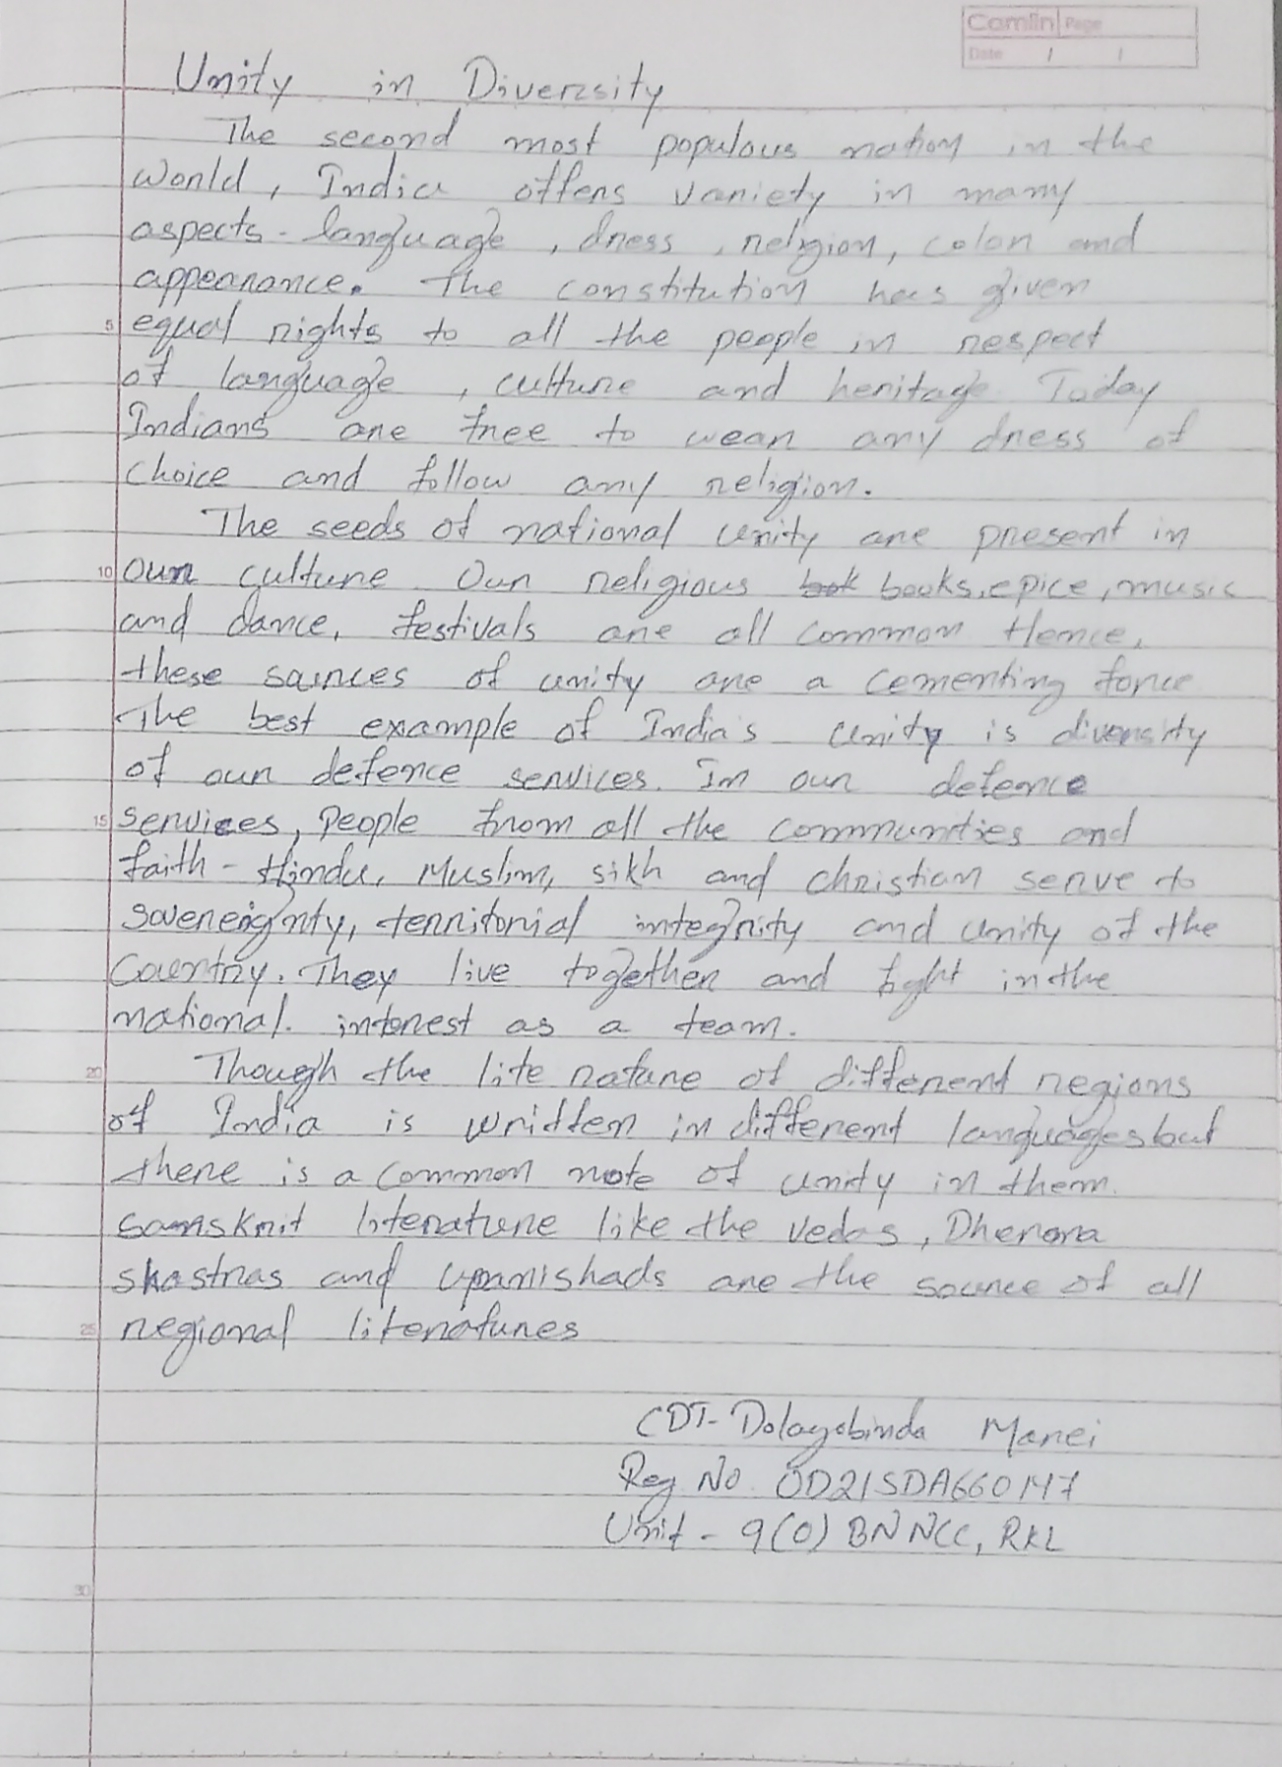 Camlin Page
Date / /
Unity in Diversity
The second most populous nation in the
World, India offers variety in many
aspects - language, dress, religion, color and
appearance. The constitution has given
5 equal rights to all the people in respect
of language, culture and heritage Today
Indians are free to wear any dress of
choice and follow any religion.
The seeds of national unity are present in
10 our culture Our religious books, epice, music
and dance, festivals are all common Hence,
these sources of unity are a cementing force
The best example of India's unity is diversity
of our defence services. In our defence
15 services, People from all the communities and
faith - Hindu, Muslim, sikh and christian serve to
sovereignty, territorial integrity and unity of the
Country. They live together and fight in the
national. interest as a team.
20 Though the lite nature of different regions
of India is written in different languages but
there is a common note of unity in them.
samskrit literature like the vedas, Dherara
shastras and upanishads are the source of all
25 regional literatures
CDT- Dolagobinda Manei
Reg No. OD21SDA660147
Unit - 9(0) BN NCC, RKL
30